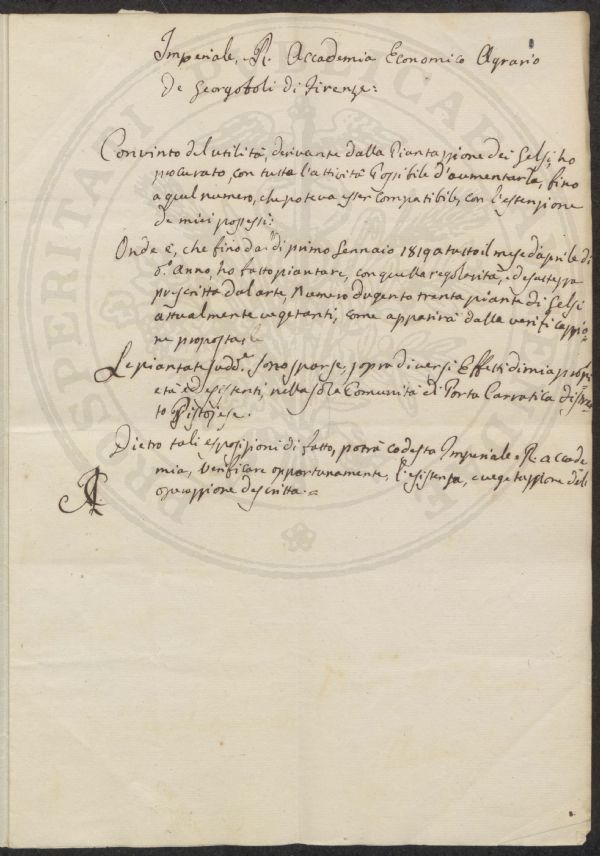 Imperiale, R. Accademia Economico Agrario
De Georgofoli di Firenze:
Convinto del utilità, derivante dalla Piantazzione dei Gelsi, ho
procurato, con tutta l'attività Possibile d'aumentarla, fino
a quel numero, che poteva esser compatibile, con l'estenzione
de miei possessi:
Onde è, che fino dai dì primo Gennaio 1819 a tutto il mese d'aprile di
d.º anno, ho fatto piantare, con quella regolarità, e desattezza
prescritta dal arte, Numero dugento trenta piante di Gelsi
attualmente vegetanti, come apparirà dalla verificazzio=
ne proposta:
Le piantate sudd.e sono sparse, sopra diversi Effetti di mia propri
età ed esistenti, nella sola Comunità di Porta Carratica distret
to Pistojese.
Dietro tali esposizioni di fatto, potrà codesta Imperiale, R. accade
mia, Verificare opportunamente, l'esistenza, e vegetazzione dell
operazzione descritta.=
PROSPERITATI PUBLICAE